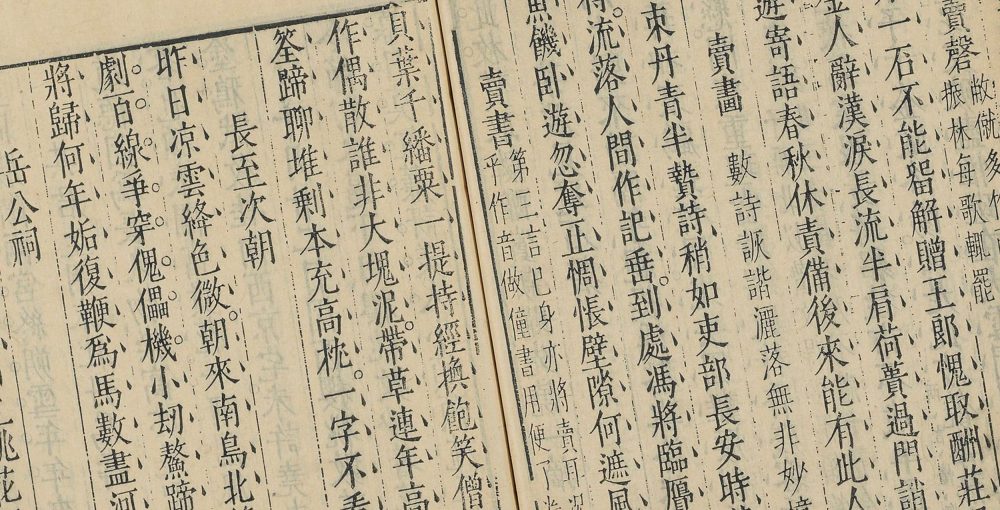 賣磬
振林每歌輒罷
一石不能畱解贈王郎愧取酬莊
金人辭漢淚長流半肩荷蕢過門誚
遊寄語春秋休責備後來能有此人
賣畫 數詩詼諧灑落無非妙
束丹青半贊詩稍如吏部長安時
流落人間作記垂到處馮將臨贋
魚饑卧遊忽奪止惆悵壁隙何遮風
賣書 第三言巳身亦將賣耳况
乎作音做僮書用便了
貝葉千繙粟一提持經換飽笑僧
作偶散誰非大塊泥。帶草連年高
筌蹄聊堆剩本充高枕。一字不
長至次朝
昨日凉雲絳色微。朝來南鳥北
劇。百線。爭。穿。傀。儡。機。小刼鰲蹄
將歸何年姤復鞭爲馬數盡河
岳公祠
桃花